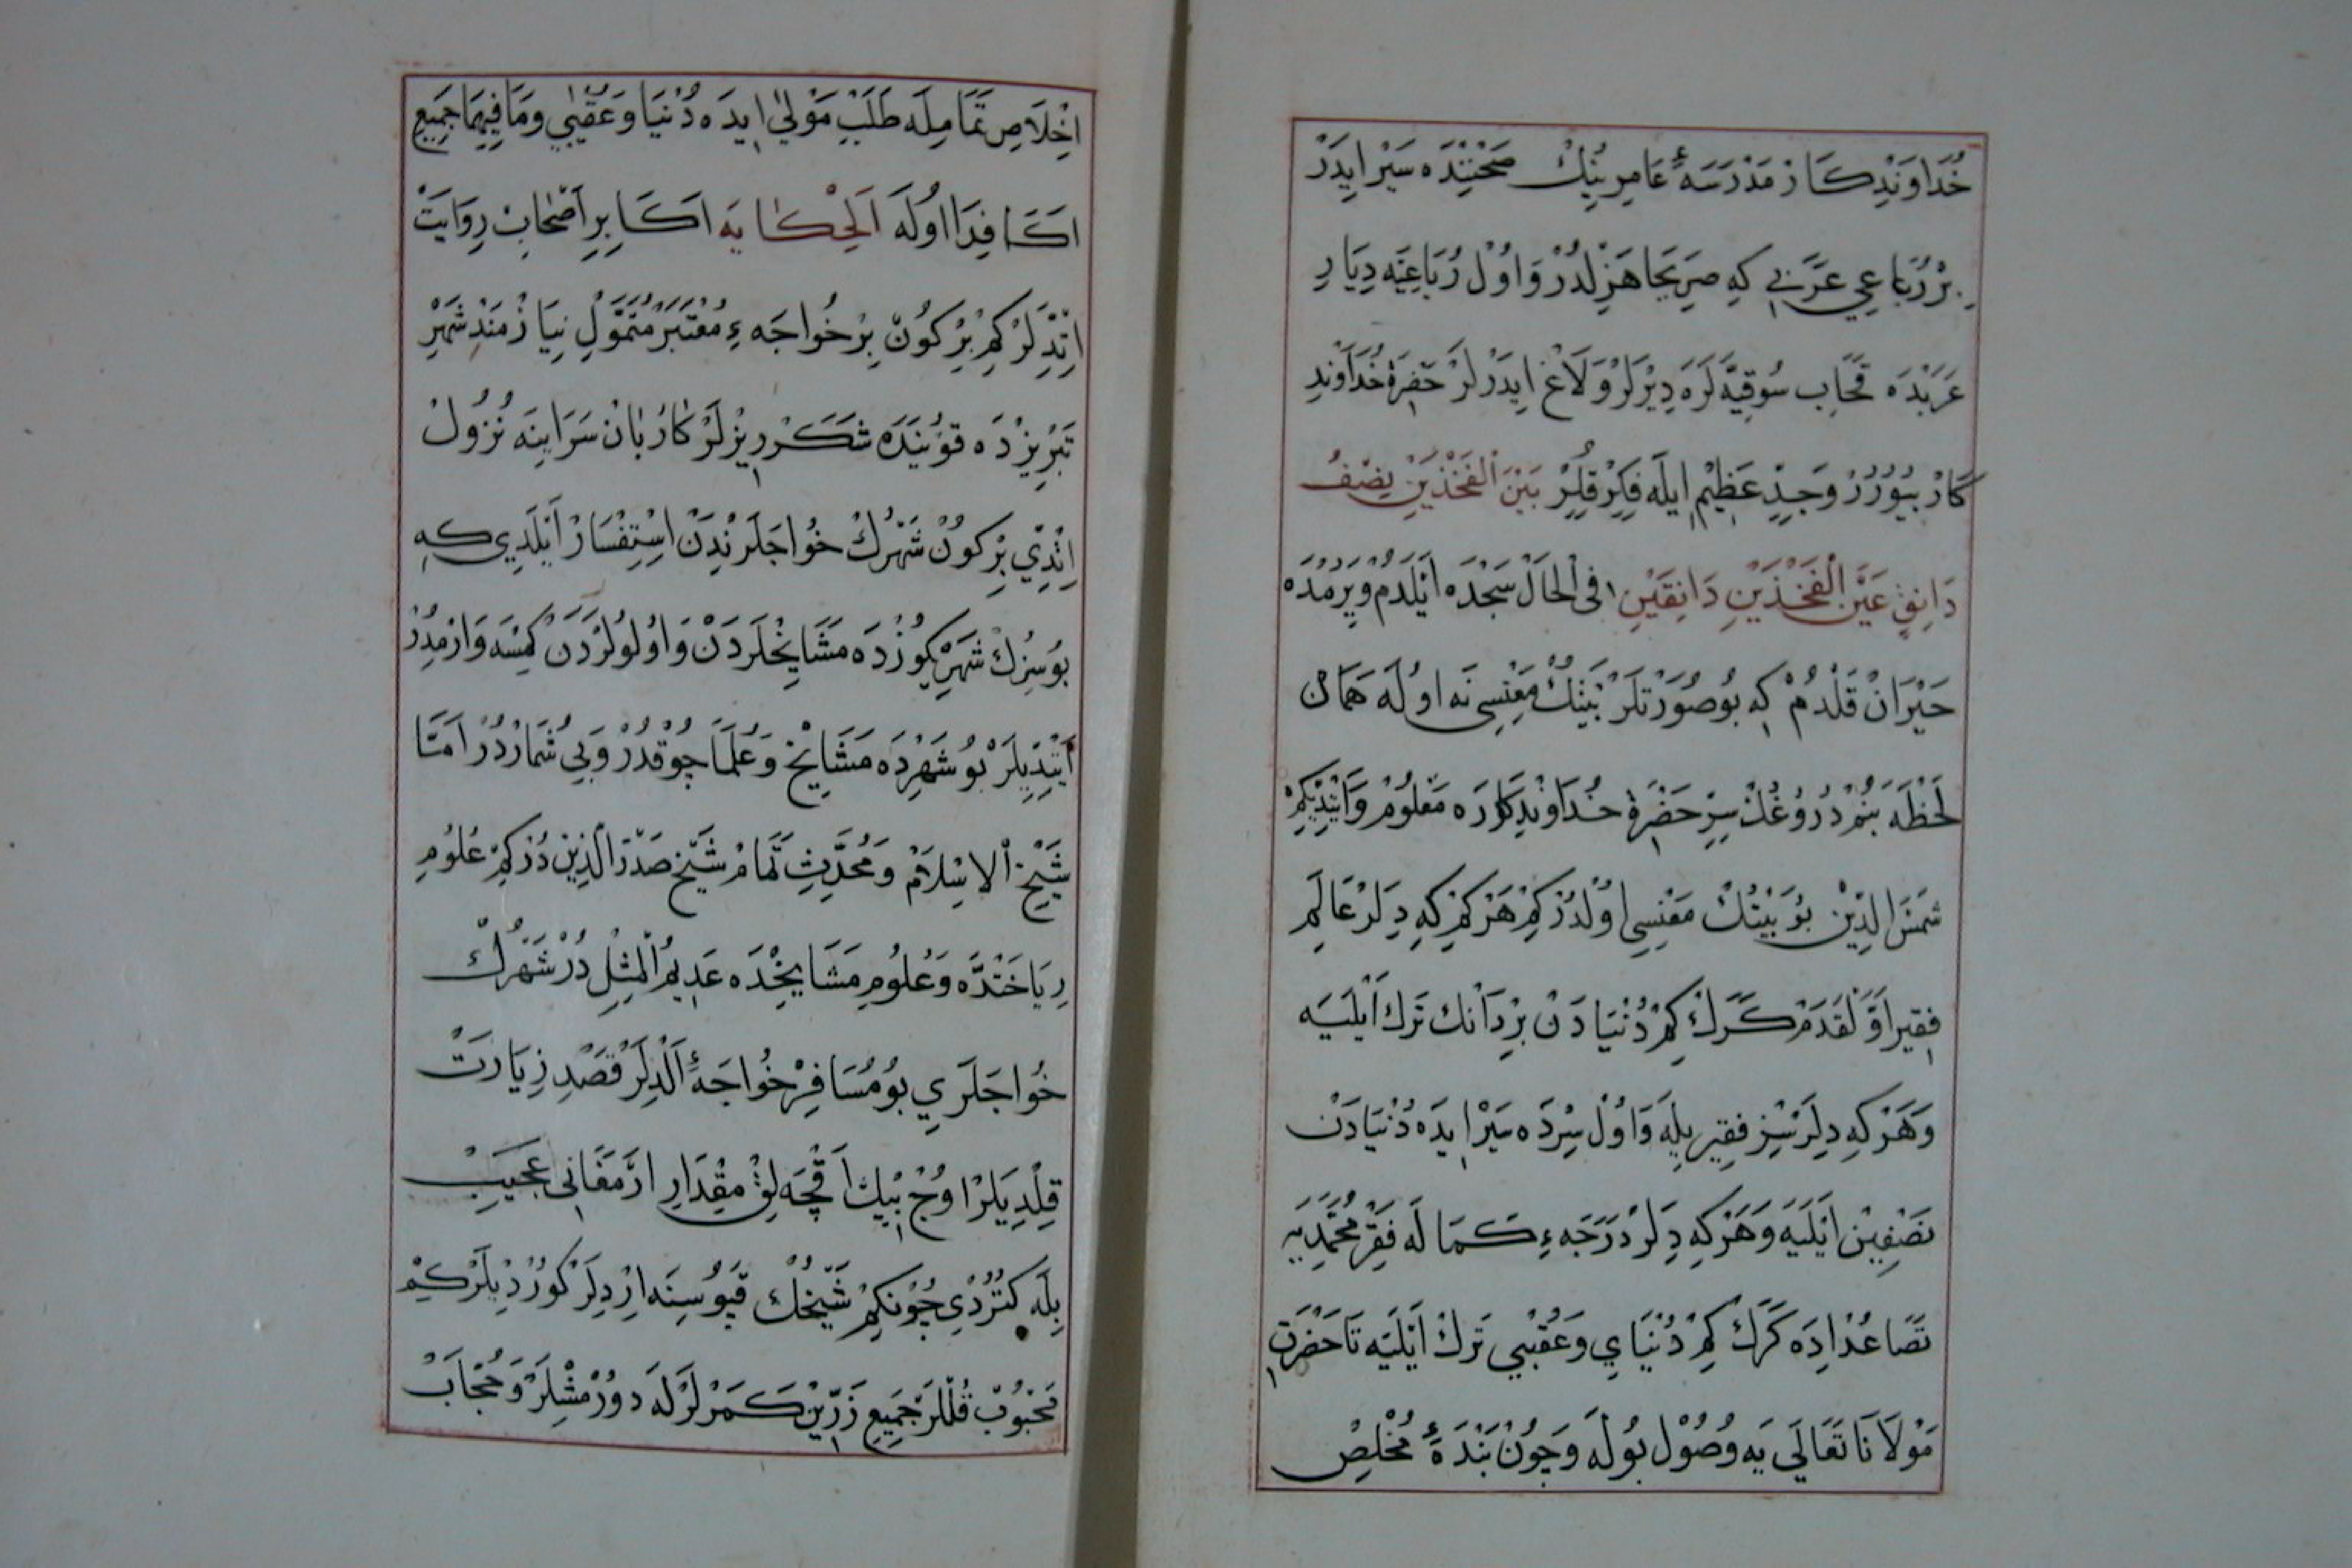 خُدَاوَنْدِكَارْ مَدْرَسَۀُ عَامِرِنِيْكْ صَحْنِنْدَه سَيْرْ ايدَرْ
بِرْ رُبَاعِي عَرَبِي كِه صَرِيحًا هَزِلْدُرْ وَاوُلْ رُبَاعِيَه دِيَارِ
عَرَبْدَه قِحَابِ سُوقِيَّه لَرَه دِيْرْلَرْ وَلَاغْ ايدَرْلَرْ حَضِرَةْ خُدَاوَنْدِ
كَارْ بُيُورُرْ وَجِدِّ عَظِيمْ ايلَه فِكِرْ قُلُرْ بَيْنَ الْفَخْذَيْنِ بِنِصْفُ
دَانِقٍ عَيْنَ الْفَخْذَيْنِ دَانِقَيْنِ فِي الْحَالْ سَجْدَه اَيْلَدُمْ وَيَرِمْدَه
حَيْرَانْ قَلْدُمْ كِه بُو صُورَتْلَرْ بَيْتُكْ مَعْنِسِي نَه اوُلَه هَمَانْ
لَحْظَه بَنُمْ دُرُوغُكْ سِرِّ حَضْرَةْ خُدَاوَنْدِكَارَه مَعْلُومْ وَاَيْتِدِيكِمْ
شَمْسَ الدِّيْنْ بُو بَيْتُكْ مَعْنِسِي اوُلْدُرْ كِمْ هَرْ كِمْ كِه دِلَرْ عَالَمِ
فِقِيرْ اَوَّلْ قَدَمْ كَرَكْ كِمْ دُنْيَادَنْ بِرْ دَانِكْ تَرْكْ اَيْلَيَه
وَهَرْ كِه دِلَرْ سِرِّ فِقِيرْ بِلَه وَاوُلْ سِرْدَه سَيْرْ ايدَه دُنْيَادَنْ
نِصْفِينْ اَيْلَيَه وَهَرْ كِه دِلَرْ دَرَجَهءِ كَمَالَه فَقِرْ مُحَمَّدِيَه
تَصَاعُدْ ادِه كَرَكْ كِمْ دُنْيَايِ وَعُقْبِي تَرْكْ اَيْلَيَه تَا حَضْرَتِ
مَوْلَانَا تَعَالَي يَه وُصُولْ بُولَه وَچُونْ بَنْدَۀُ مُخْلِصْ
اِخْلَاصِ تَمَامِلَه طَلَبِ مَوْلَي ايدَه دُنْيَا وَعُقْبِي وَمَا فِيهَا جَمِيعِ
اكَا فِدَا اوُلَه اَلْحِكَايَه اَكَابِرِ اَصْحَابْ رِوَايَتْ
اِتْدِلَرْ كِمْ بِرْ كُونْ بِرْ خُواجَهءِ مُعْتَبَرْ مُتَمَوِّلِ نِيَازْمَنْدِ شَهْرِ
تَبْرِيزْدَه قُونْيَدَه شَكَرْرِيزْلَرْ كَارْبَانْ سَرَاينَه نُزُولْ
اِتْدِي بِرْ كُونْ شَهْرُكْ خُواجَلَرِنْدِنْ اسْتِفْسَارْ اَيْلَدِي كِه
بُو سِزُكْ شَهْرِكُوزْدَه مَشَايِخْلَرْدَنْ وَاوُلُولَرْدَنْ كِمْسَه وَارْمِدُرْ
اَيْتْدِيلَرْ بُو شَهْرِدَه مَشَايِخْ وَعُلَمَا چُوقْدُرْ وَبِي شُمَارْدُرْ اَمَّا
شَيْخُ الْاِسْلَامْ وَمُحَدِّثِ تَمَامْ شَيْخْ صَدْرَ الدِّينْ دُرْ كِمْ عُلُومِ
رِيَاخَتْدَه وَعُلُومِ مَشَايِخْدَه عَدِيمُ الْمِثْلْ دُرْ شَهْرُكْ
خُواجَلَرِي بُو مُسَافِرْ خُواجَۀُ اَلْدِلَرْ قَصْدِ زِيَارَتْ
قِلْدِيَلَرْ اوُچْ بِيكْ اَقْچَه لِقْ مِقْدَارِ ارْمَغَانِي عَجِيبْ
بِلَه كَتُرْدِي چُونْكِمْ شَيْخُكْ قَپُوسِنَه ارْدِلَرْ كُورْدِيلَرْ كِيمْ
مَحْبُوبْ قُلْلَرْ جَمِيعِ زَرِّينْ كَمَرْلَرْلَه دورْمِشْلَرْ وَحُجَّابْ